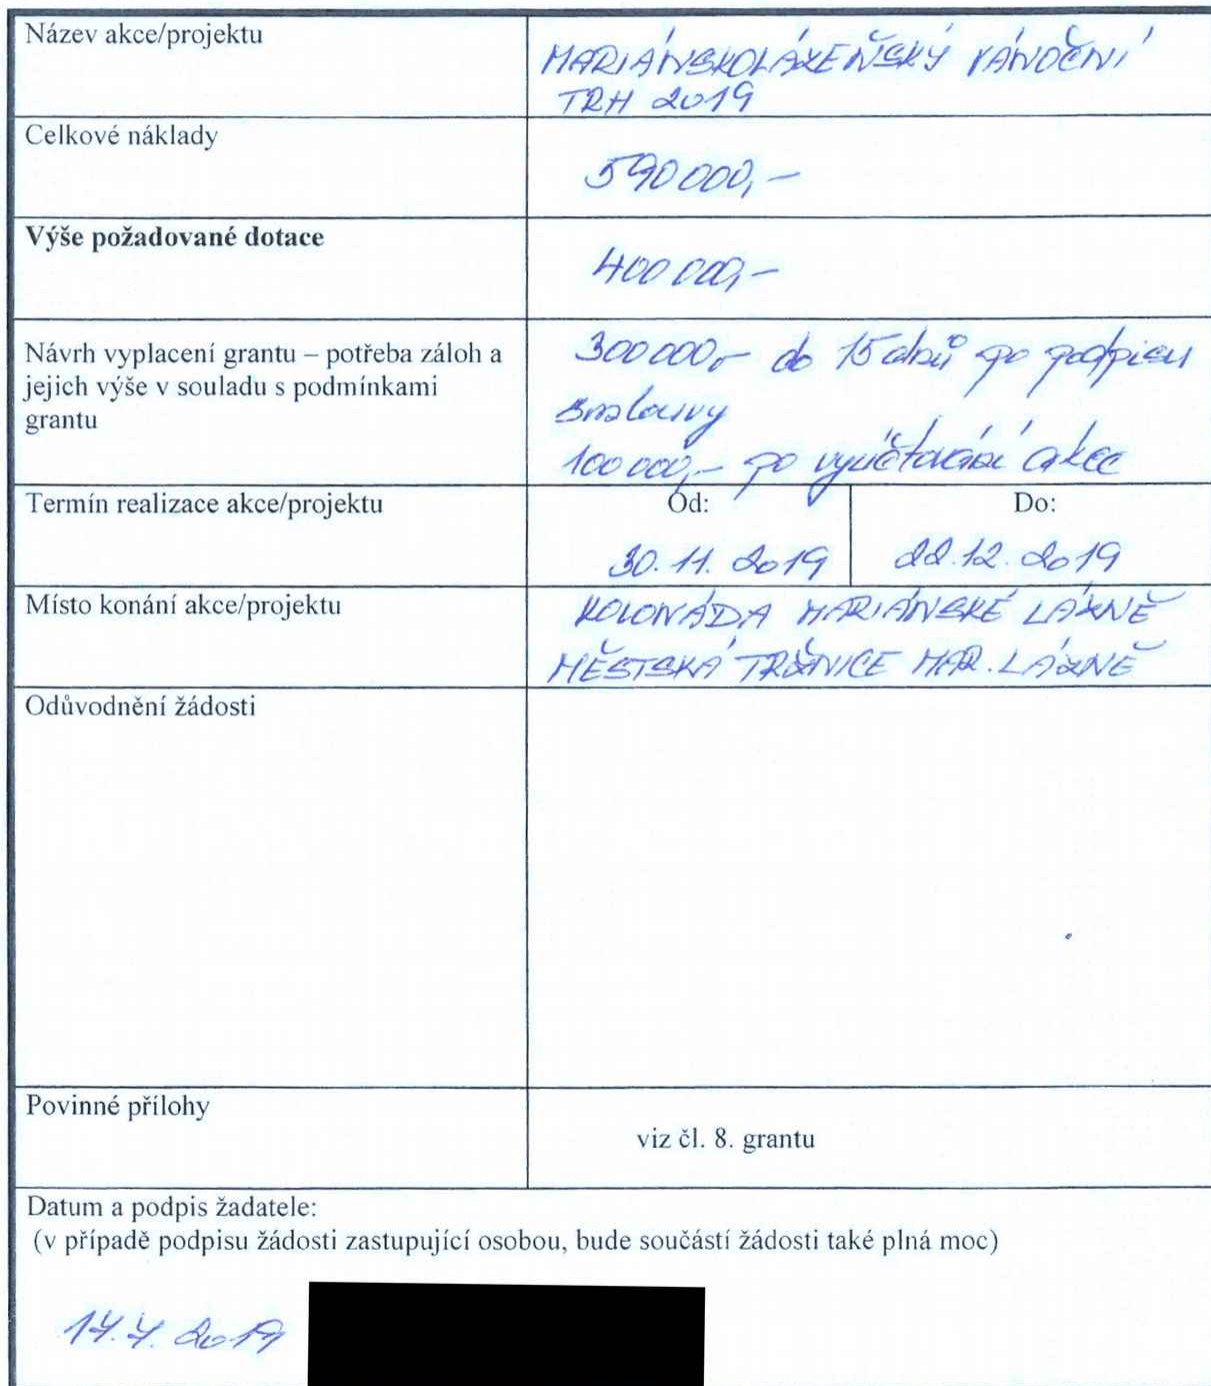 Název akce/projektu
MARIÁNSKOLÁZEŇSKÝ VÁNOČNÍ
TRH 2019
Celkové náklady
590 000,-
Výše požadované dotace
400 000,-
Návrh vyplacení grantu – potřeba záloh a
jejich výše v souladu s podmínkami
grantu
300 000,- do 15 dnů po podpisu
smlouvy
100 000,- po vyúčtování akce
Termín realizace akce/projektu
Od:
Do:
30. 11. 2019
22.12. 2019
Místo konání akce/projektu
KOLONÁDA MARIÁNSKÉ LÁZNĚ
MĚSTSKÁ TRŽNICE MAR. LÁZNĚ
Odůvodnění žádosti
Povinné přílohy
viz čl. 8. grantu
Datum a podpis žadatele:
(v případě podpisu žádosti zastupující osobou, bude součástí žádosti také plná moc)
2019